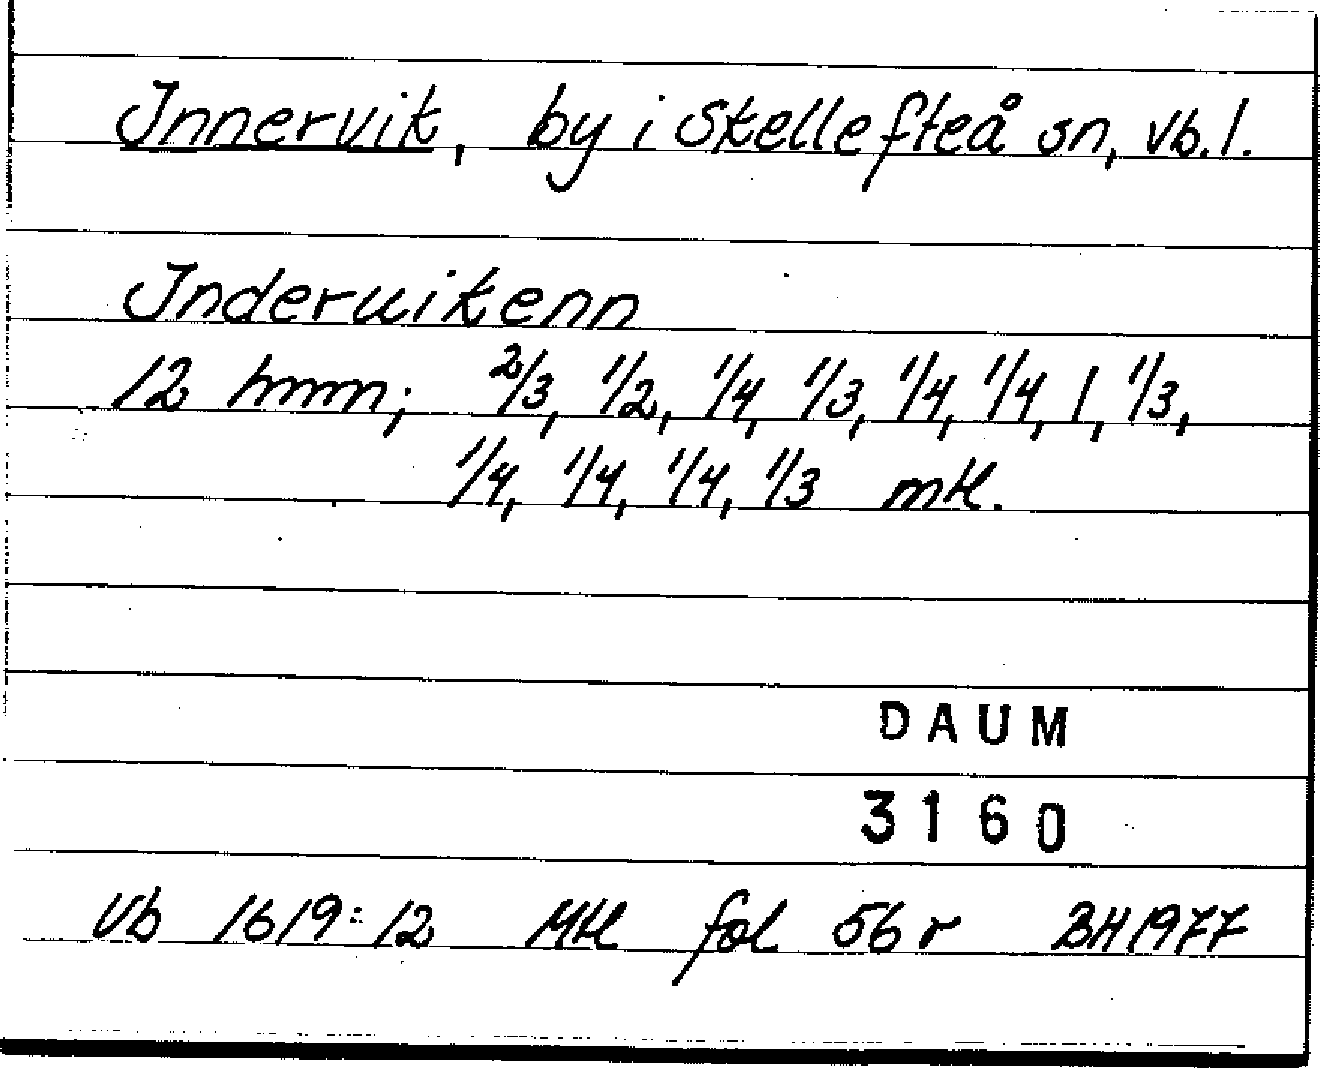 Innervik, by i Skellefteå sn, Vb. l.
Inderuikenn
12 hmn; 2/3, 1/2, 1/4, 1/3, 1/4, 1/4, 1, 1/3,
1/4, 1/4, 1/4, 1/3 mtl.
DAUM
3160
Vb 1619:12 Mtl fol 56 r BH 1977